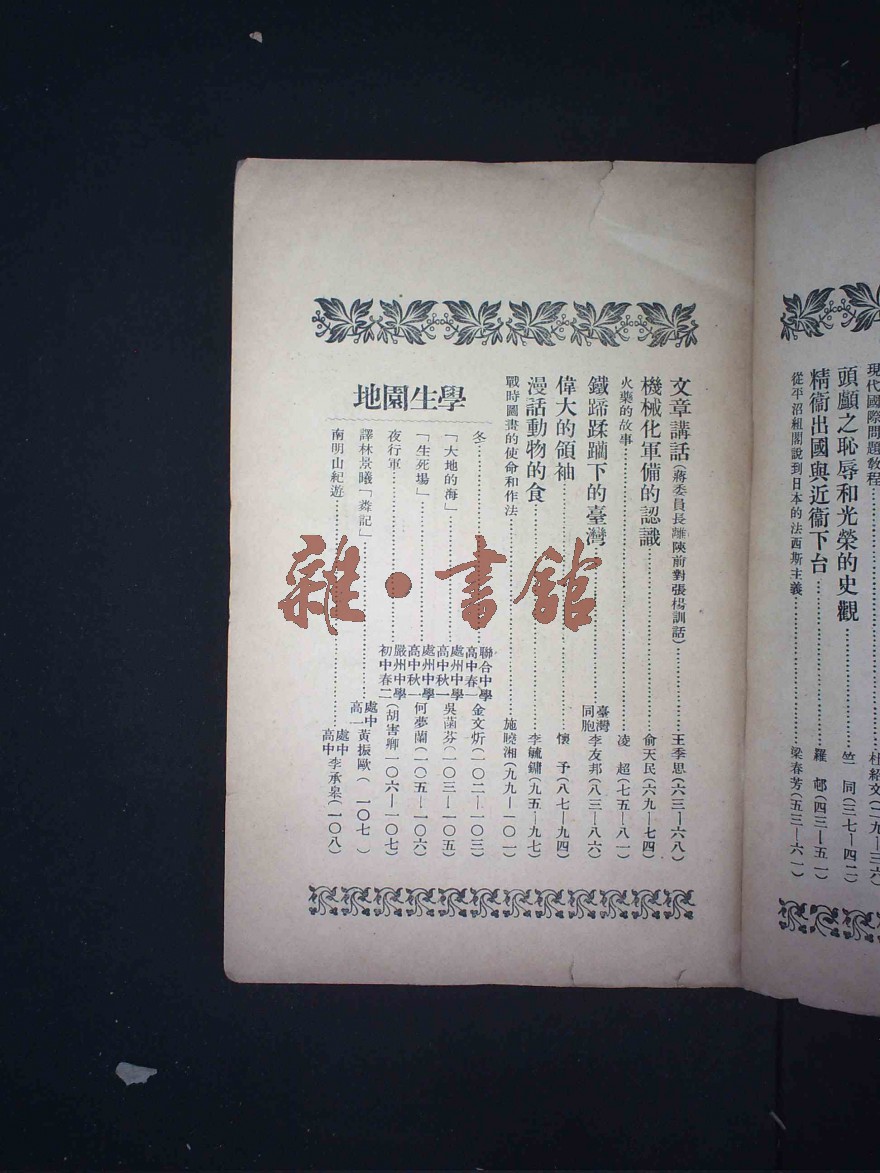 現代國際問題教程……杜紹文(二九—三六)
頭顱之恥辱和光榮的史觀……竺同(三七—四二)
精衞出國與近衞下台……羅邨(四三—五一)
從平沼組閣說到日本的法西斯主義……梁春芳(五三—六一)
文章講話(蔣委員長離陝前對張楊訓話)……王季思(六三—六八)
機械化軍備的認識……俞天民(六九—七四)
火藥的故事……凌超(七五—八一)
鐵蹄蹂躪下的臺灣……臺灣同胞李友邦(八三—八六)
偉大的領袖……懷予(八七—九四)
漫話動物的食……李毓鏞(九五—九七)
戰時圖畫的使命和作法……施曉湘(九九—一〇一)
學生園地
冬……聯合中學高中春一金文炘(一〇二—一〇三)
「大地的海」……處州中學高中秋一吳菡芬(一〇三—一〇五)
「生死場」……處州中學高中秋一何夢蘭(一〇五—一〇六)
夜行軍……嚴州中學初中春二(胡害聊一〇六—一〇七)
譯林景曦「粦記」……處中高一黃振歐(一〇七)
南明山紀遊……處中高中李承皋(一〇八)
雜·書館